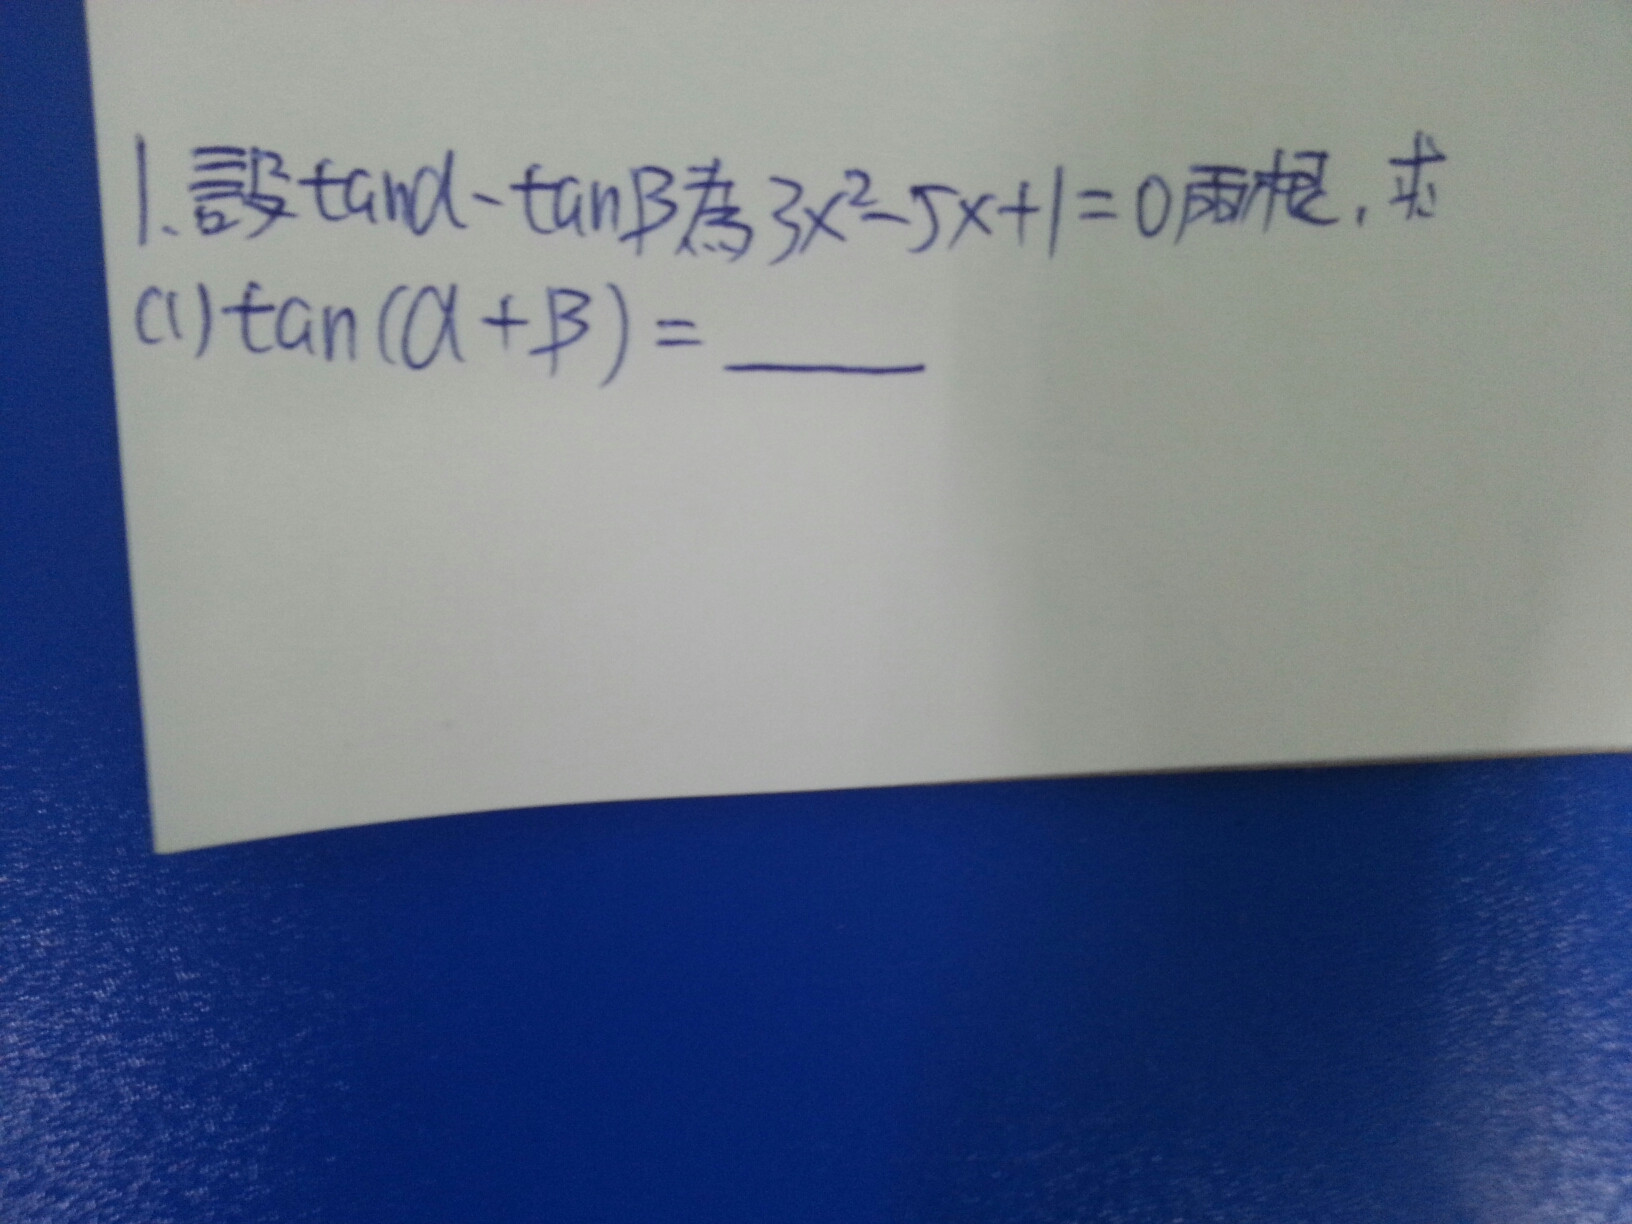 1.設tanα-tanβ為3x²-5x+1=0兩根,求
(1)tan(α+β)=____